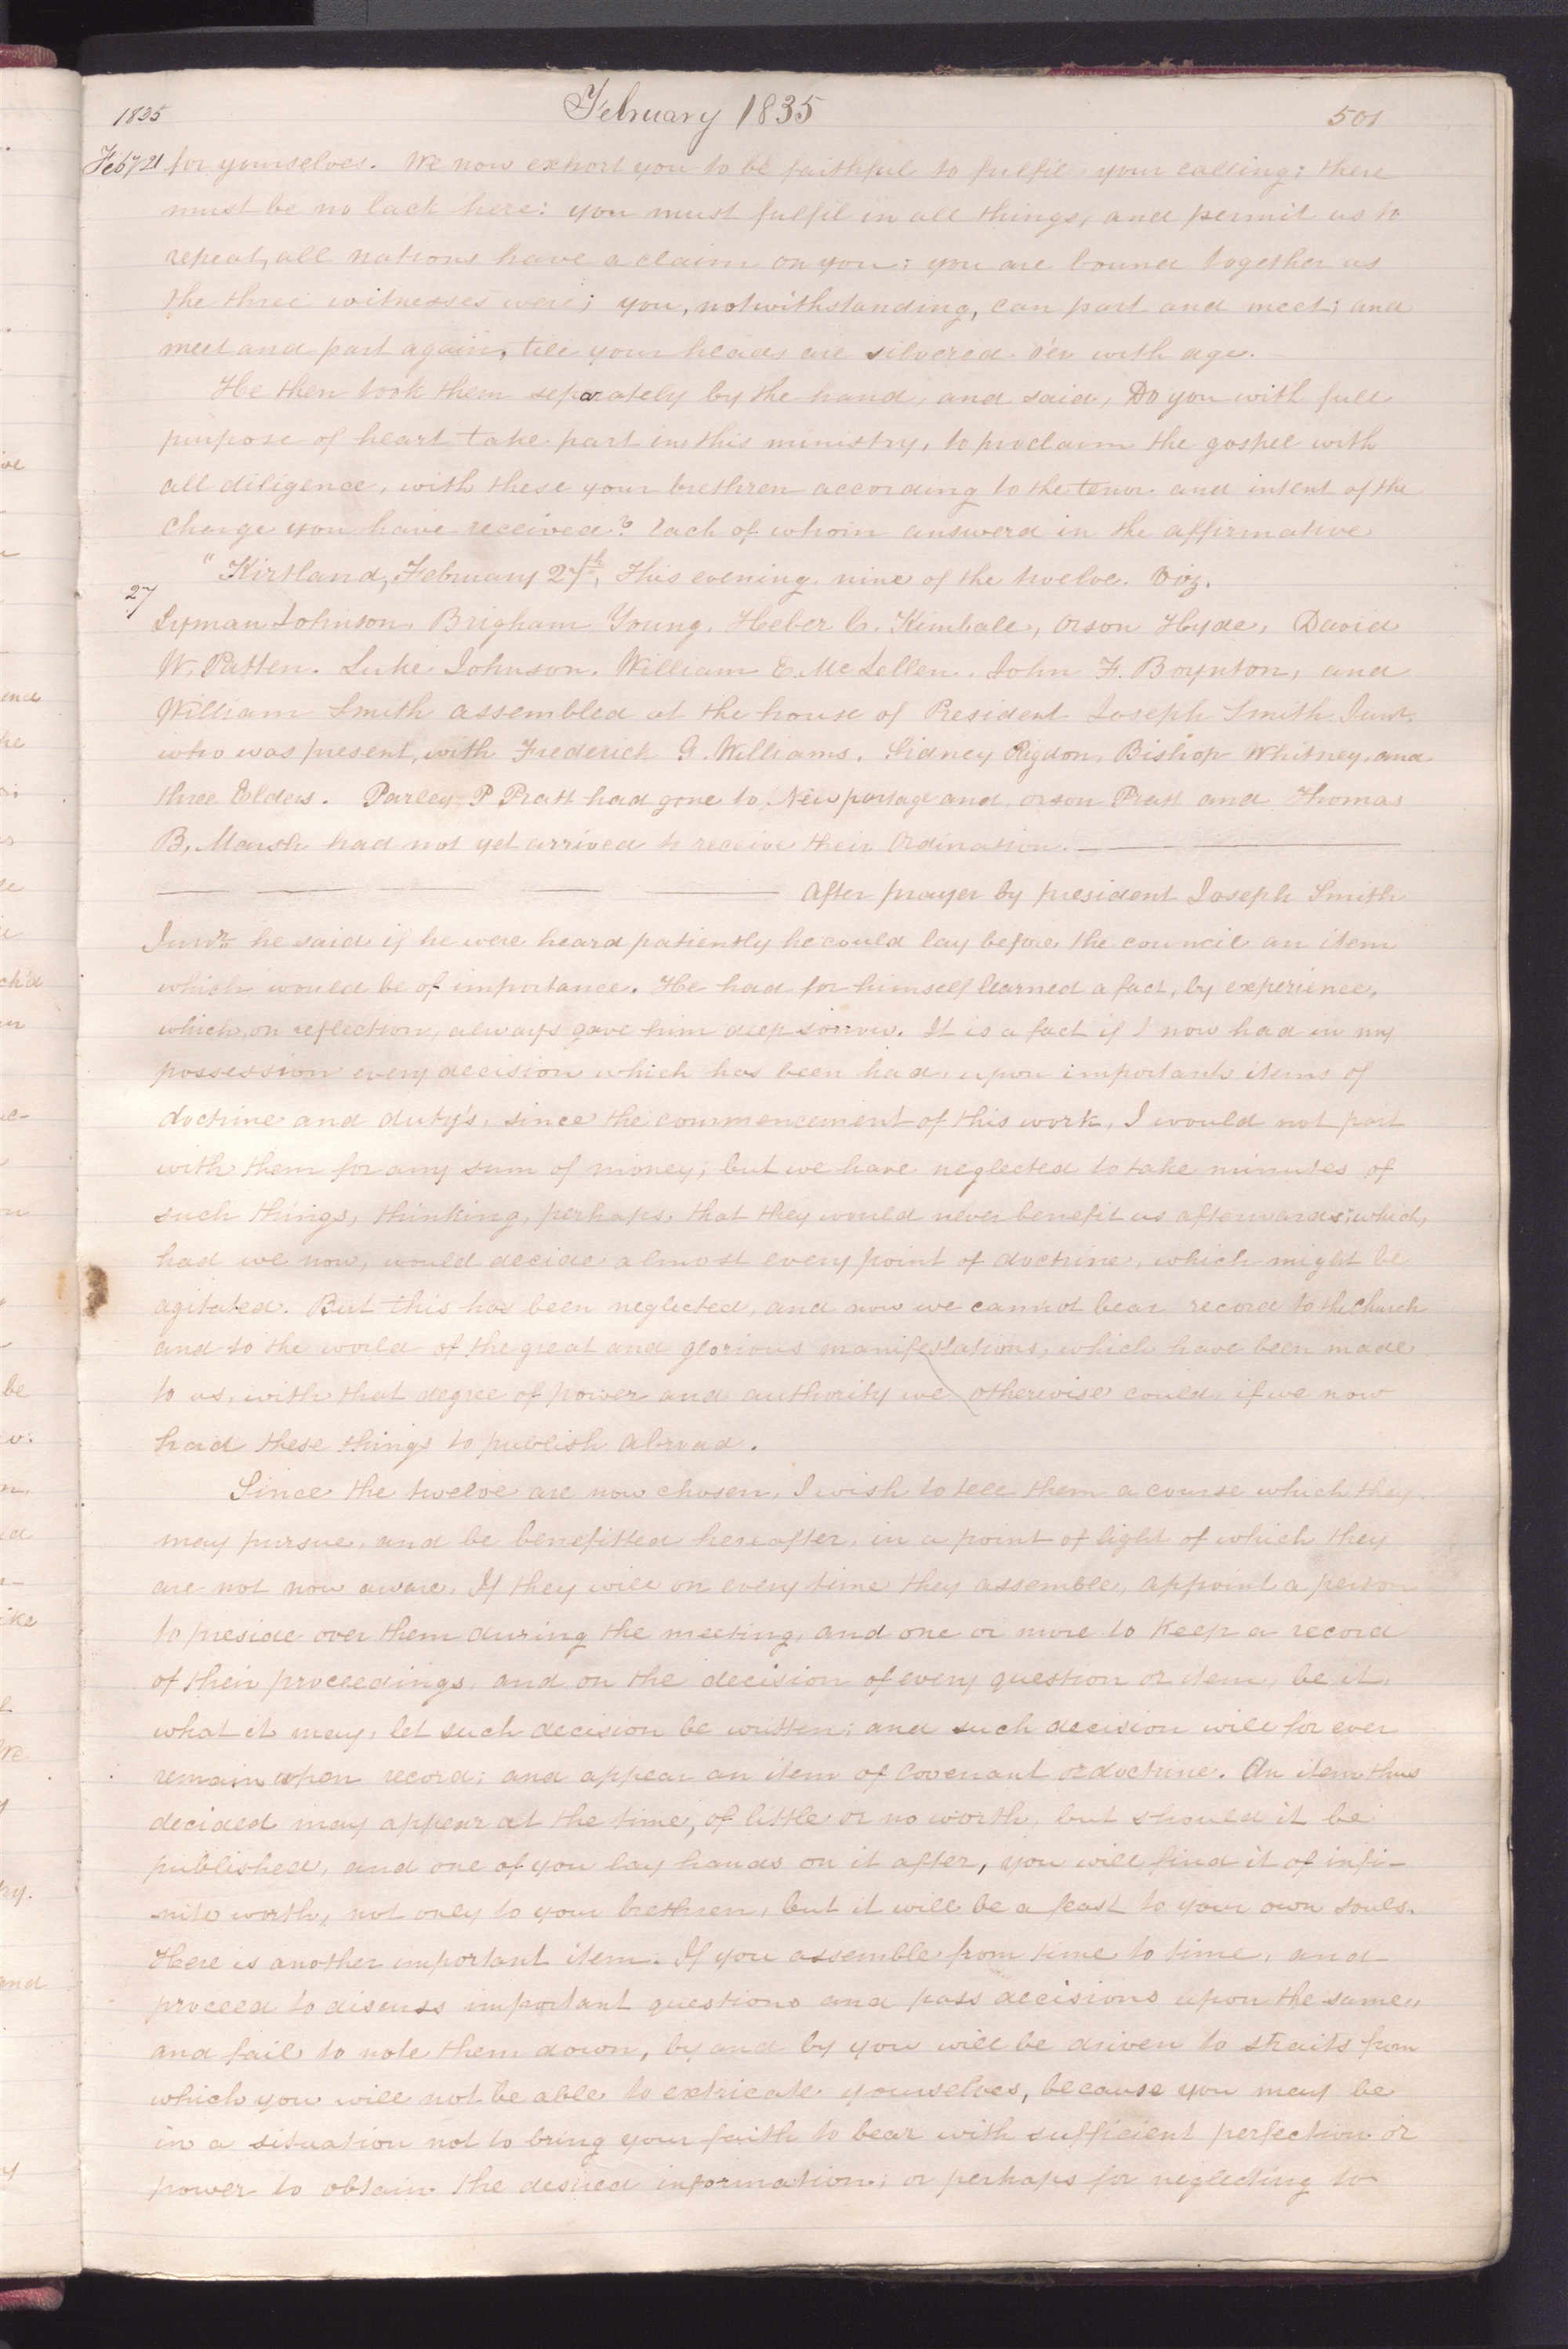 1835 February 1835 501
Feby 21 for yourselves. We now exhort you to be faithful to fulfil your calling; there
must be no lack here: you must fulfil in all things, and permit us to
repeat, all nations have a claim on you; you are bound together as
the three witnesses were; you, notwithstanding, can part and meet; and
meet and part again, till your heads are silvered o'er with age.
He then took them separately by the hand, and said, Do you with full
purpose of heart take part in this ministry, to proclaim the gospel with
all diligence, with these your brethren according to the tenor and intent of the
Charge you have received? Each of whom answerd in the affirmative
27 "Kirtland, February 27th, This evening nine of the twelve. Viz.
Lyman Johnson, Brigham Young, Heber C. Kimball, Orson Hyde, David
W. Patten. Luke Johnson. William E. McLellen. John F. Boynton, and
William Smith assembled at the house of President Joseph Smith Junr.
who was present, with Frederick G. Williams, Sidney Rigdon, Bishop Whitney, and
three Elders. Parley P Pratt had gone to Newportage and, Orson Pratt and Thomas
B, Marsh had not yet arrived to receive their Ordination.
After prayer by president Joseph Smith
Junr. he said if he were heard patiently he could lay before the council an item
which would be of importance. He had for himself learned a fact, by experience,
which, on reflection, always gave him deep sorrow. It is a fact if I now had in my
possession every decision which has been had upon important items of
doctrine and duty's, since the commencement of this work, I would not part
with them for any sum of money; but we have neglected to take minutes of
such things, thinking, perhaps, that they would never benefit us afterwards; which,
had we now, would decide almost every point of doctrine, which might be
agitated. But this has been neglected, and now we cannot bear record to the Church
and to the world of the great and glorious manifestations, which have been made
to us, with that degree of power and authority we otherwise could, if we now
had these things to publish abroad.
Since the twelve are now chosen, I wish to tell them a course which they
may pursue, and be benefitted hereafter, in a point of light of which they
are not now aware. If they will on every time they assemble, appoint a person
to preside over them during the meeting, and one or more to Keep a record
of their proceedings, and on the decision of every question or item, be it,
what it may, let such decision be written; and such decision will for ever
remain upon record; and appear an item of Covenant or doctrine. An item thus
decided may appear at the time, of little or no worth, but should it be
published, and one of you lay hands on it after, you will find it of infi-
nite worth, not only to your brethren, but it will be a feast to your own souls.
Here is another important item. If you assemble from time to time, and
proceed to discuss important questions and pass decisions upon the same,
and fail to note them down, by and by you will be driven to straits from
which you will not be able to extricate yourselves, because you may be
in a situation not to bring your faith to bear with sufficient perfection or
power to obtain the desired information; or perhaps for neglecting to